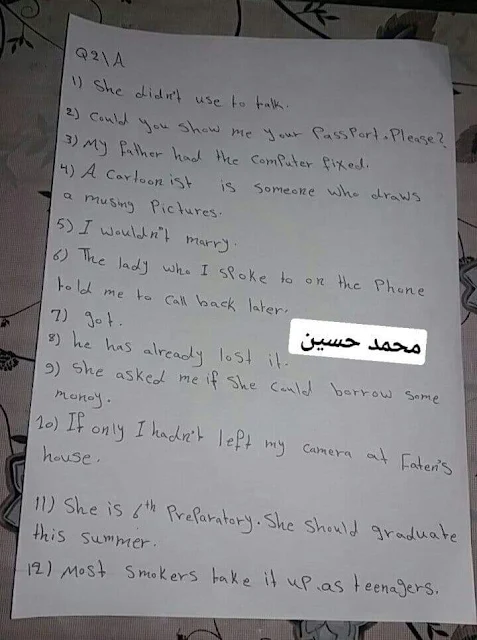 Q2\A
1) She didn't use to talk.
2) Could you show me your PassPort, Please?
3) My father had the computer fixed.
4) A cartoonist is someone who draws
a musing Pictures.
5) I wouldn't marry.
6) The lady who I spoke to on the Phone
told me to call back later.
7) got.
محمد حسين
8) he has already lost it.
9) She asked me if She could borrow some
money.
10) If only I hadn't left my camera at Faten's
house.
11) She is 6th Preparatory. She should graduate
this summer.
12) Most smokers take it up as teenagers.